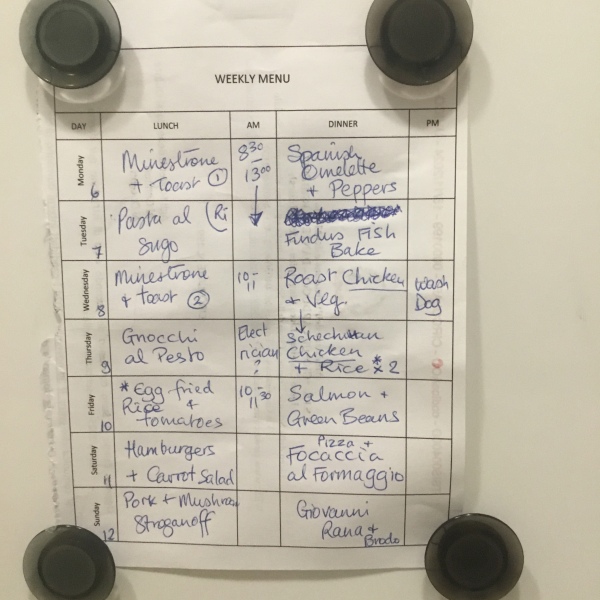 WEEKLY MENU
DAY LUNCH AM DINNER PM
Monday 6
Minestrone
+ Toast ①
8³⁰
–
13⁰⁰
Spanish
Omelette
+ Peppers
Tuesday 7
Pasta al (Ri
Sugo
Findus Fish
Bake
Wednesday 8
Minestrone
+ toast ②
10–
11
Roast Chicken
+ Veg.
Wash
Dog
Thursday 9
Gnocchi
al Pesto
Elect
rician
?
Schechuan
Chicken
+ Rice * x 2
Friday 10
* Egg fried
Rice +
tomatoes
10–
11³⁰
Salmon +
Green Beans
Saturday 11
Hamburgers
+ Carrot Salad
Pizza +
Focaccia
al Formaggio
Sunday 12
Pork + Mushroom
Stroganoff
Giovanni
Rana +
Brodo